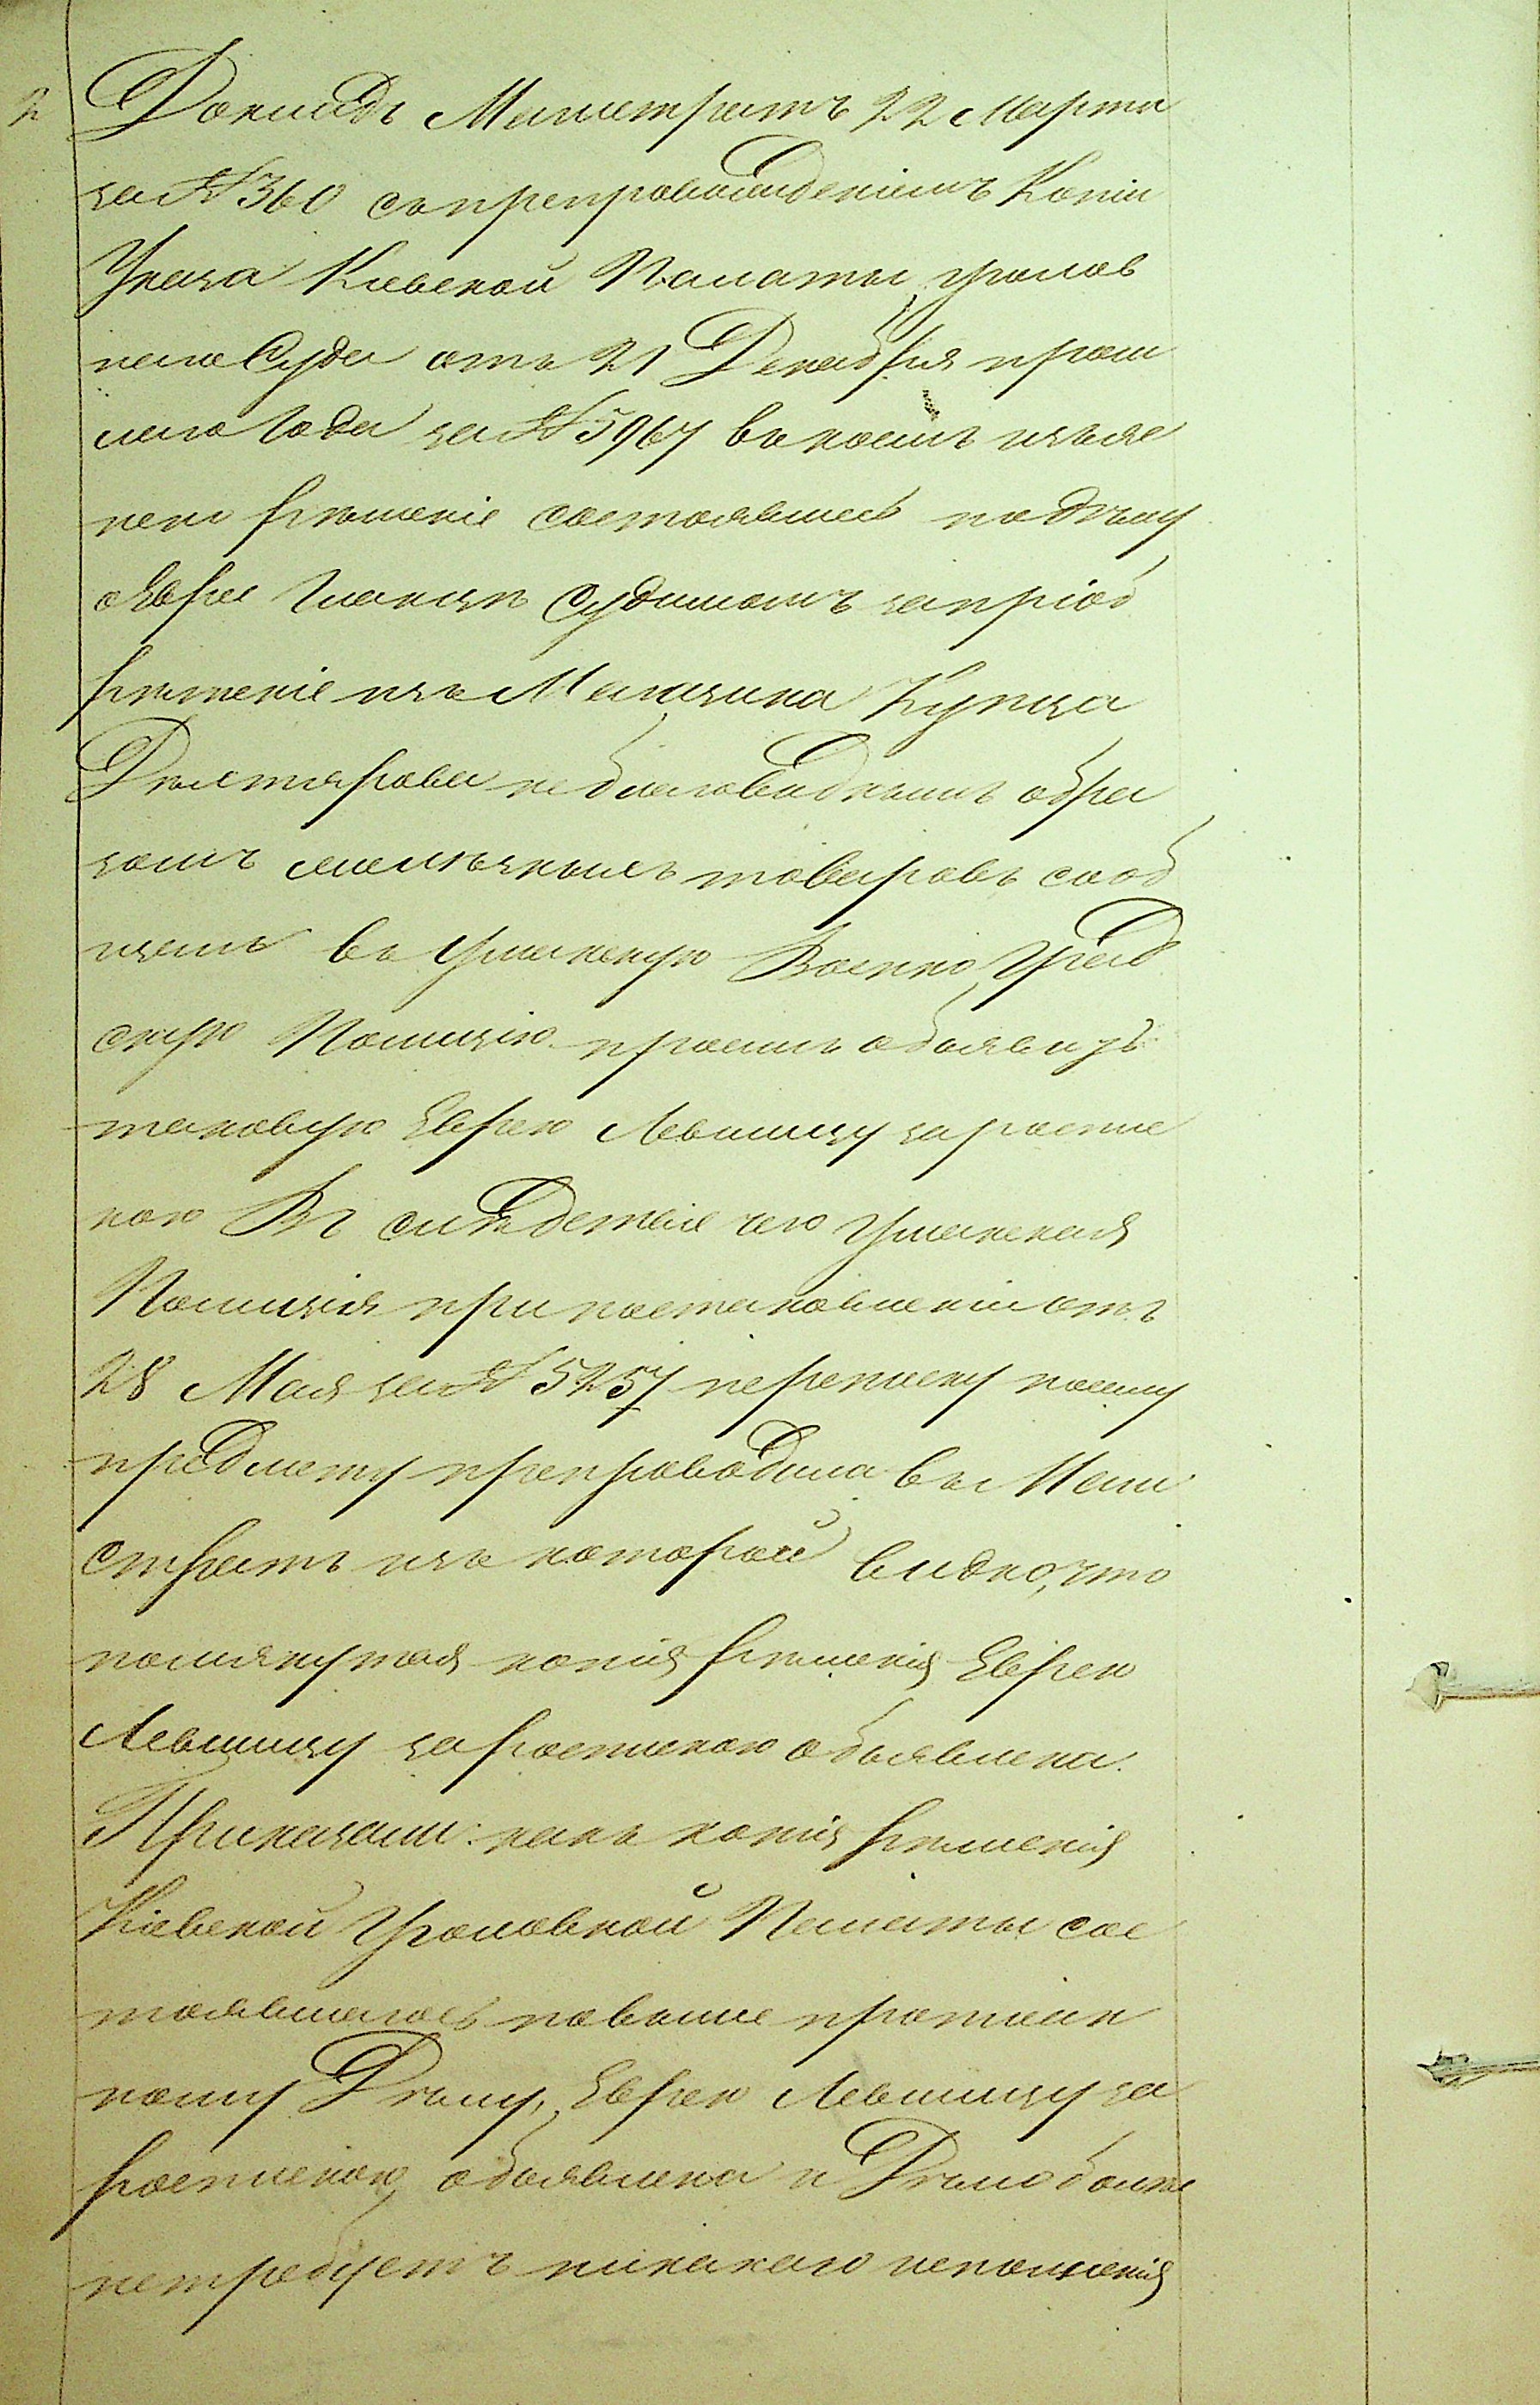 2 Докладъ Магистратъ 22 Марта
за № 360 съ препровожденіемъ Копіи
Указа Кіевской Палаты уголов
наго Суда отъ 21 Декабря прош
лаго Года за № 5967 въ коемъ изъяс
нено решеніе состоявшеесь по делу
о Еврее судимомъ за пріоб
ретеніе изъ Магазина Купца
Дехтярова неблаговиднымъ обра
зомъ товаровъ, сооб
щалъ въ Уманскую Военно Град
скую Полицію просилъ объявить
таковую Еврею Левшицу за роспис
кою Въ следствіе чего Уманская
Полиція при постановленіи отъ
28 Мая за № 5257 переписку по сему
предмету препроводила въ Маги
стратъ изъ которой видно, что
помянутая копія решенія Еврею
Левшицу за роспискою объявлена.
Приказали: какъ копія решенія
Кіевской Уголовной Палаты сос
тоявшагось по выше прописан
ному Делу, Еврею Левшицу за
роспискою объявлена и Дело более
нетребуетъ никакаго исполненія